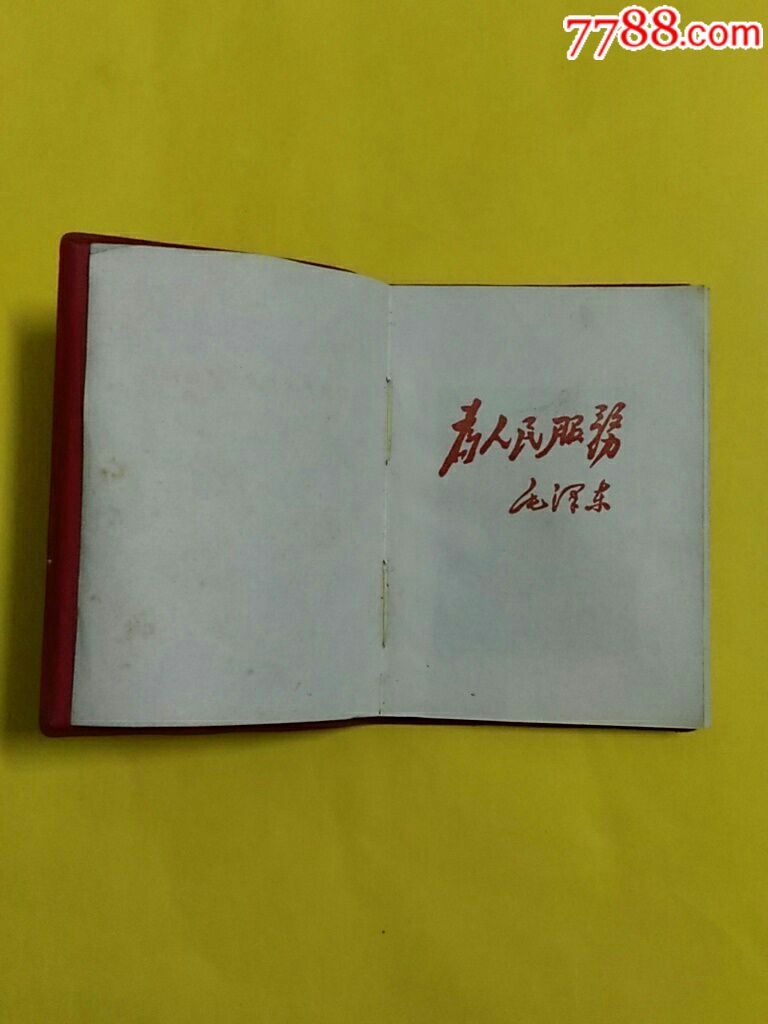 7788.com
为人民服務
毛泽东